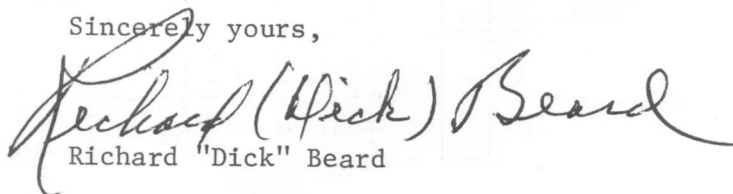 Sincerely yours,
Richard (Dick) Beard
Richard "Dick" Beard